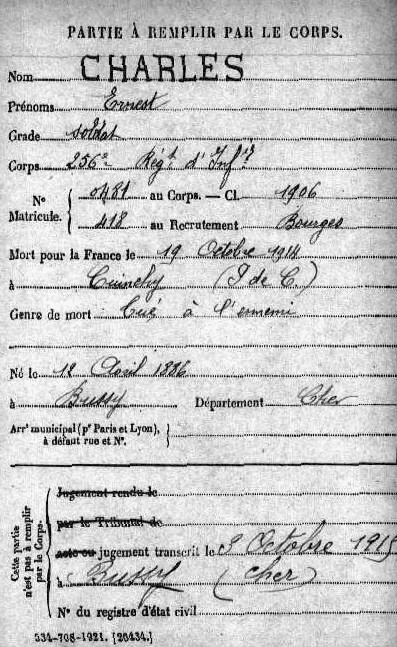 PARTIE À REMPLIR PAR LE CORPS.
Nom CHARLES
Prénoms Ernest
Grade soldat
Corps 256e Régt d'Infie
N° Matricule. 0481 au Corps. — Cl. 1906
418 au Recrutement Bourges
Mort pour la France le 19 Octobre 1914
à Cuinchy (P de C.)
Genre de mort tué à l'ennemi
Né le 12 Avril 1886
à Bussy Département Cher
Arrt municipal (pr Paris et Lyon),
à défaut rue et N°.
Cette partie
n'est pas à remplir
par le Corps.
Jugement rendu le
par le Tribunal de
acte ou jugement transcrit le 9 Octobre 1915
à Bussy (Cher)
N° du registre d'état civil
534-708-1921. [26434.]